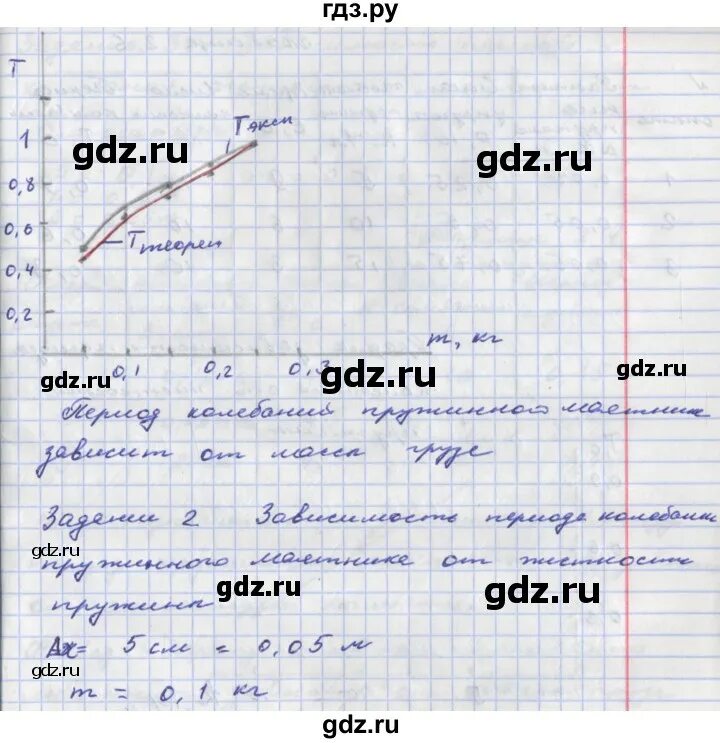 гдз.ру
T
1
Tэксп
gdz.ru
gdz.ru
0,8
0,6
Tтеорет
0,4
0,2
m, кг
0,1 0,2 0,3
gdz.ru gdz.ru gdz.ru
Период колебаний пружинного маятник
зависит от массы груза
Задание 2 Зависимость периода колебани
gdz.ru
пружинного маятника от жесткости
gdz.ru gdz.ru
пружины
Δx = 5 см = 0,05 м
gdz.ru
m = 0,1 кг
gdz.ru